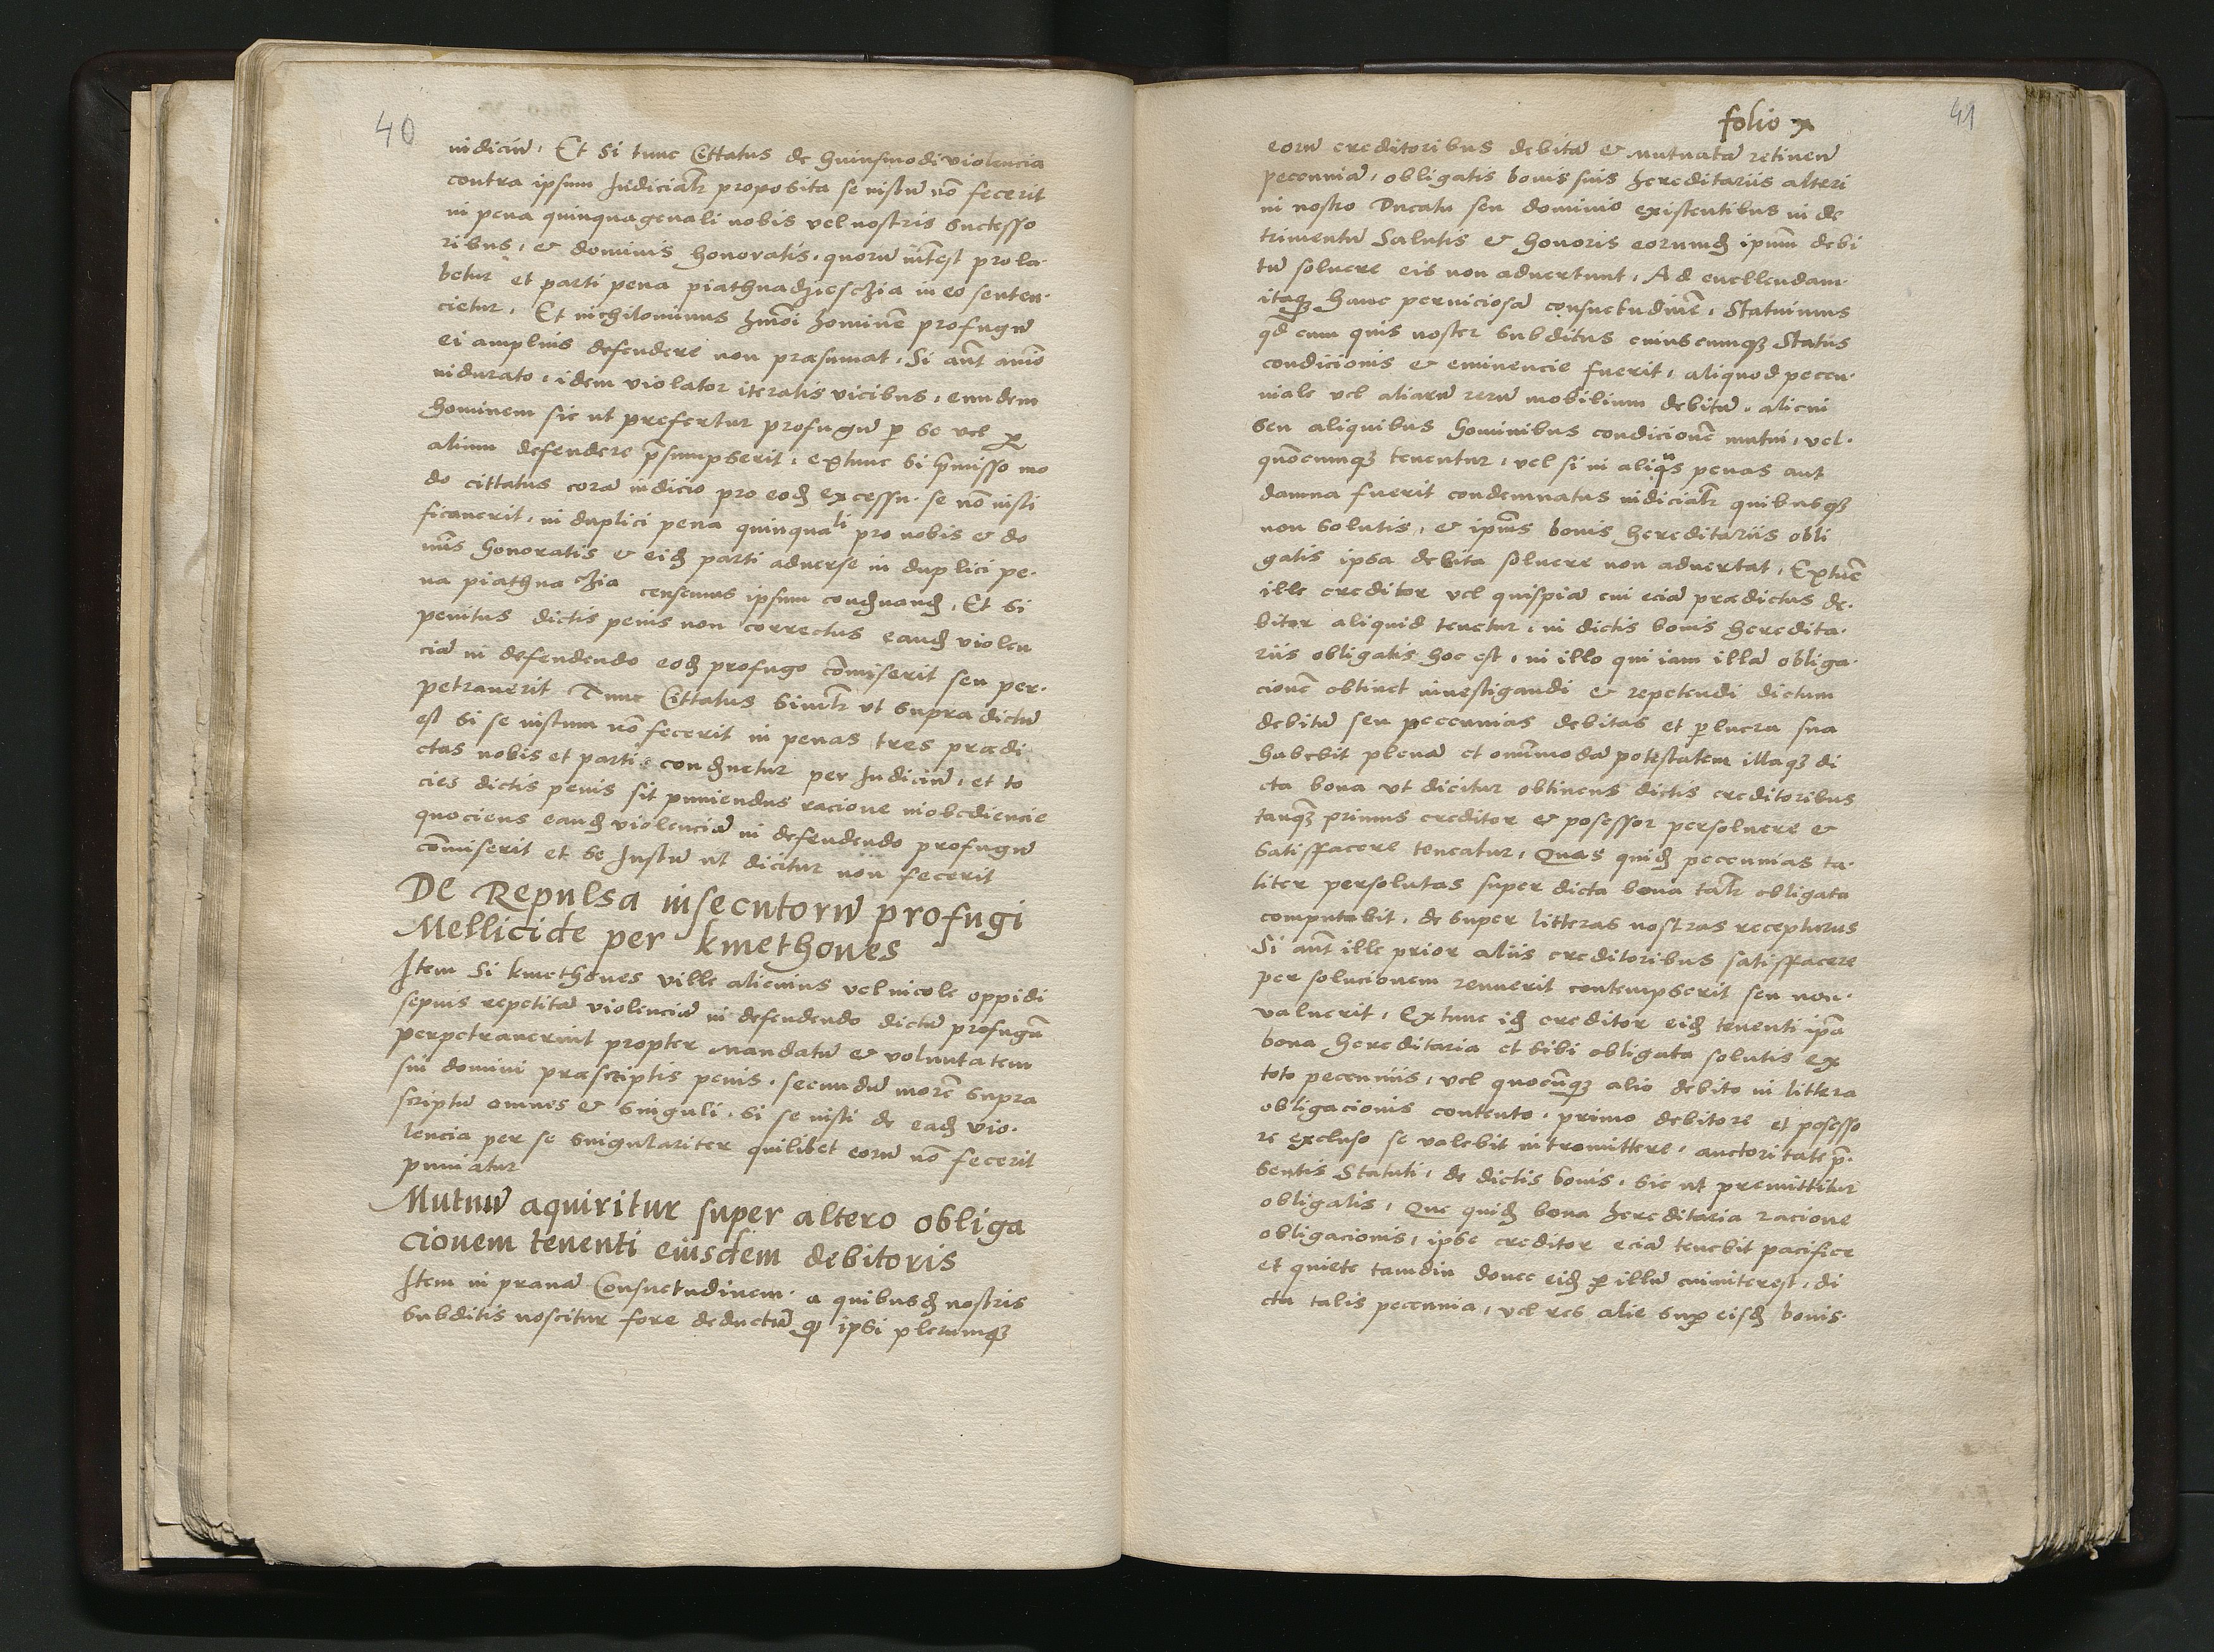 40
iudiciũ. Et si tunc Cittatus de huiusmodi violencia
contra ipsum Judiciatr proposita se iustũ nõ fecerit
in pena quinquagenali nobis vel nostris successo
ribus, & dominis honoratis, quorũ intest prola-
betur et parti pena piathnadziesczia in eo senten-
cietur. Et nichilominus hmõi hominẽ profugũ
ei amplius defendere non praesumat. Si aũt aĩo
indurato, idem violator iteratis vicibus, eundem
hominem sic ut prefertur profugũ p se vel p
alium defendere p̃sumpserit, extunc si p̃misso mo
do cittatus corã iudicio pro eodẽ excessu. se nõ iusti
ficauerit, in duplici pena quinquali pro nobis & do
nĩs honoratis & eidẽ parti aduerse in duplici pe-
na piathna czia censemus ipsum condẽnandũ. Et si
penitus dictis penis non correctus eandẽ violen
ciã in defendendo eodẽ profugo cõmiserit seu per-
petrauerit Tunc Cittatus simitr ut supra dictũ
est si se iustum nõ fecerit in penas tres praedi
ctas nobis et parti condẽnetur per Judiciũ, et to
cies dictis penis sit puniendus racione inobediencie
quociens eandẽ violenciã in defendendo profugũ
cõmiserit et se Justũ ut dicitur non fecerit
De Repulsa insecutorũ profugi
Mellicide per kmethones
Item Si kmethones ville alicuius vel incole oppidi
sepius repetitã violenciã in defendendo dictũ profugũ
perpetrauerint propter mandatũ & voluntatem
sui domini praescriptis penis, secundũ morẽ supra
scriptũ omnes & singuli, si se iusti de eadẽ vio-
lencia per se singulariter quilibet eorũ nõ fecerit
puniatur
Mutuũ aquiritur super altero obliga
cionem tenenti eiusdem debitoris
Item in prauã Consuetudinem. a quibusdẽ nostris
subditis noscitur fore deductũ q ipsi plerumq3
folio x
41
eorũ creditoribus debitã & mutuatã retinent
pecenniã, obligatis bonis suis hereditariis alteri
in nostro Ducatu seu dominio existentibus in de
trimentũ Salutis & honoris eorumdẽ ipsum debi
tũ soluere eis non aduertunt, Ad euellendam
itaq3 hanc perniciosã consuetudinẽ, Statuimus
qd cum quis noster subditus cuiuscumq3 Status
condicionis & eminencie fuerit, aliquod peccu-
niale vel aliarũ rerũ mobilium debitũ, alicui
seu aliquibus hominibus condicionẽ mutui, vel
quõcumq3 tenentur, vel si in aliqas penas aut
damna fuerit condemnatus iudiciatr quibusq3
non solutis, & ipĩus bonis hereditariis obli
gatis ipsa debita soluere non aduertat, Extũc
ille creditor vel quispiã cui eciã praedictus de-
bitor aliquid tenetur, in dictis bonis heredita-
riis obligatis hoc est, in illo qui iam illã obliga-
cionẽ obtinet inuestigandi & repetendi dictum
debitũ seu peccunias debitas et p lucra sua
habebit plenã et omnimodã potestatem illaq3 di
cta bona ut dicitur obtinens dictis creditoribus
tanq3 primus creditor & posessor persoluere &
satisffacere teneatur, Quas quidẽ pecennias ta-
liter persolutas super dicta bona tatr obligata
computabit, de super litteras nostras recepturus
Si aũt ille prior aliis creditoribus satisffacere
per solucionem renuerit contempserit seu non
valuerit, Extunc idẽ creditor eidẽ tenenti ip̃a
bona hereditaria et sibi obligata solutis ex
toto pecenniis, vel quocũq3 alio debito in littera
obligacionis contento, primo debitore et posesso
re excluso se valebit intromittere, auctoritate p̃-
sentis Statuti, de dictis bonis, sic ut premittitur
obligatis, Que quidẽ bona hereditaria racione
obligacionis, ipse creditor eciã tenebit pacifice
et quiete tamdiu donec eidẽ p illũ cuiinterest, di
cta talis pecennia, vel res alie sup eisdẽ bonis